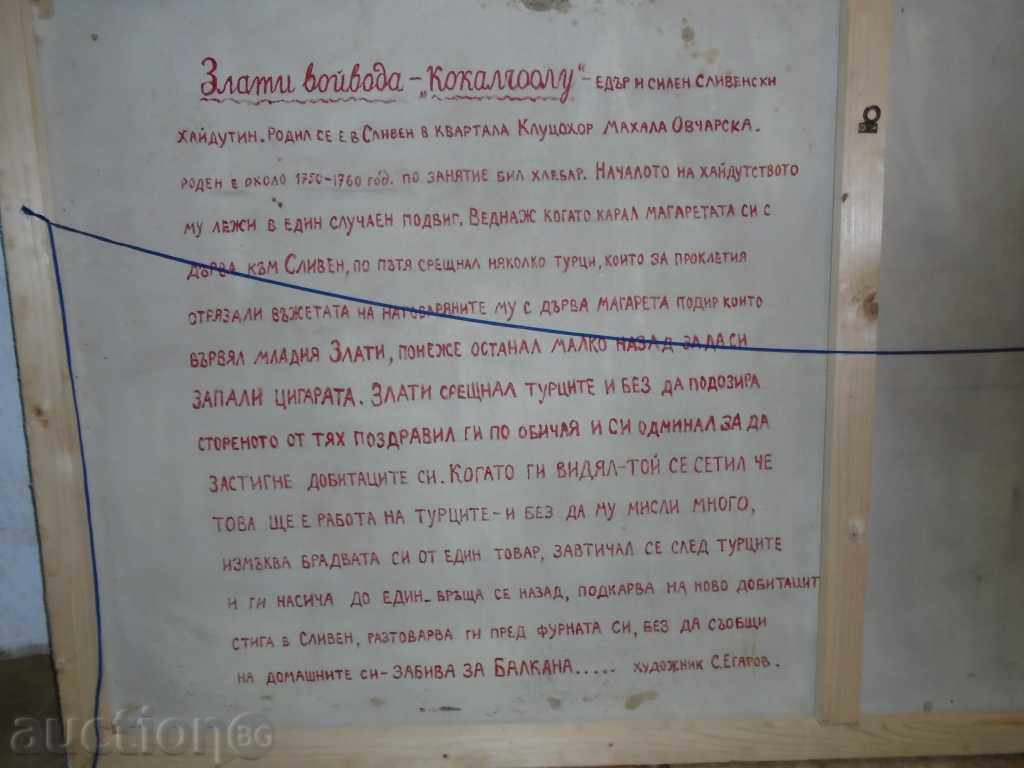 Злати войвода - „Кокалчоолу“ - едър и силен Сливенски
хайдутин. Родил се е в Сливен в квартала Клуцохор махала Овчарска.
роден е около 1750-1760 год. по занятие бил хлебар. Началото на хайдутството
му лежи в един случаен подвиг. Веднаж когато карал магаретата си с
дърва към Сливен, по пътя срещнал няколко турци, които за проклетия
отрязали въжетата на натоваряните му с дърва магарета подир които
вървял младия Злати, понеже останал малко назад за да си
запали цигарата. Злати срещнал турците и без да подозира
стореното от тях поздравил ги по обичая и си одминал за да
застигне добитаците си. Когато ги видял - той се сетил че
това ще е работа на турците - и без да му мисли много,
измъква брадвата си от един товар, завтичал се след турците
и ги насича до един - връща се назад, подкарва на ново добитацит
стига в Сливен, разтоварва ги пред фурната си, без да съобщи
на домашните си - забива за Балкана..... художник С. Егаров.
auction BG